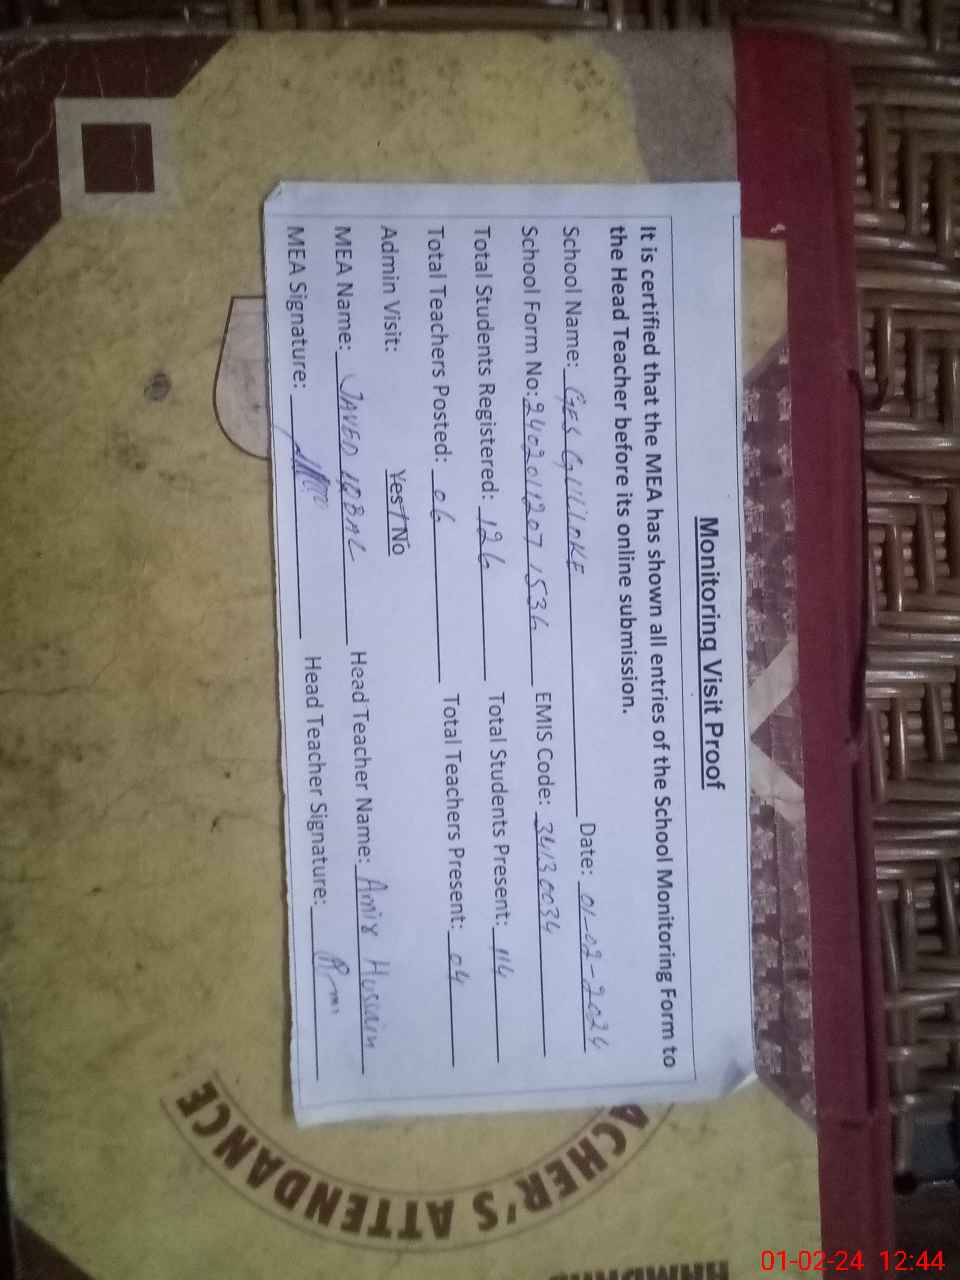 Monitoring Visit Proof
It is certified that the MEA has shown all entries of the School Monitoring Form to
the Head Teacher before its online submission.
School Name: GES Date: 01-02-2024
School Form No: 2402011207 1536 EMIS Code: 34130034
Total Students Registered: 126 Total Students Present: 114
Total Teachers Posted: 06 Total Teachers Present: 04
Admin Visit: Yes/No
MEA Name: JAVED IQBAL Head Teacher Name: Amir Hussain
MEA Signature: Head Teacher Signature:
ACHER'S ATTENDANCE
01-02-24 12:44